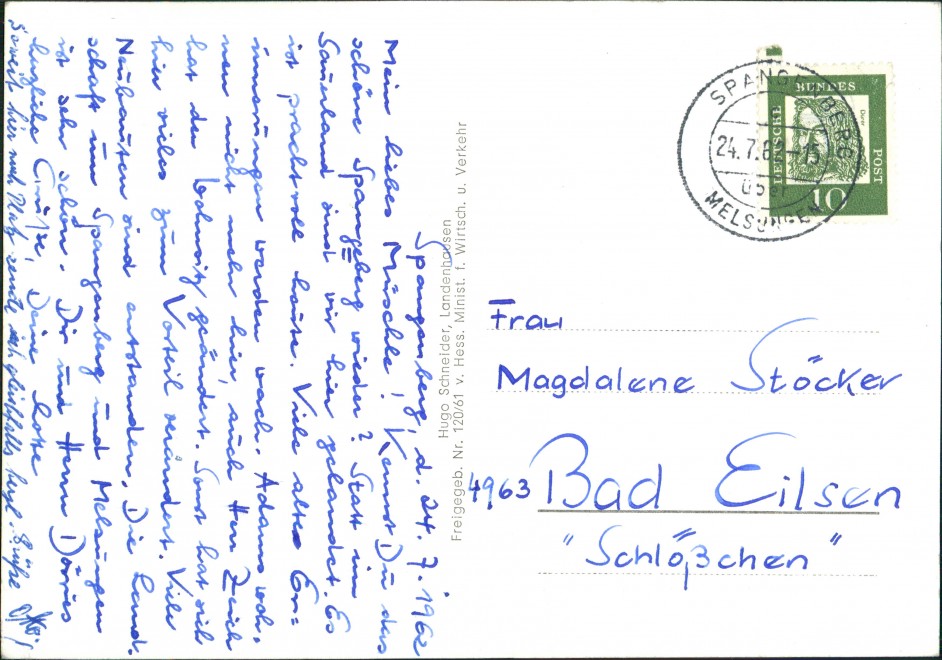 Spangenberg, d. 24.7.1962
Mein liebes Muschle! Kennst Du das
schöne Spangeberg wieder? Statt im
Sauerland sind wir hier gelandet. Es
ist prachtvoll heute. Viele alte Er-
innerungen werden wach. Adams woh-
nen nicht mehr hier, auch Herr Zeich
hat den Wohnsitz geändert. Sonst hat sich
hier vieles zum Vorteil verändert. Viele
Neubauten sind entstanden. Die Land-
schaft um Spangenberg und Melsungen
ist sehr schön. Dir und Herrn Dörries
herzliche Grüße! Deine Lotte
Soweit hier noch Platz sende ich gleichfalls herzl. Grüße
Hugo Schneider, Landenhausen
Freigegeb. Nr. 120/61 v. Hess. Minist. f. Wirtsch. u. Verkehr
SPANGENBERG
24.7.62-15
über
MELSUNGEN
DEUTSCHE
BUNDES
POST
Dürer
10
Frau
Magdalene Stöcker
4963 Bad Eilsen
"Schlößchen"